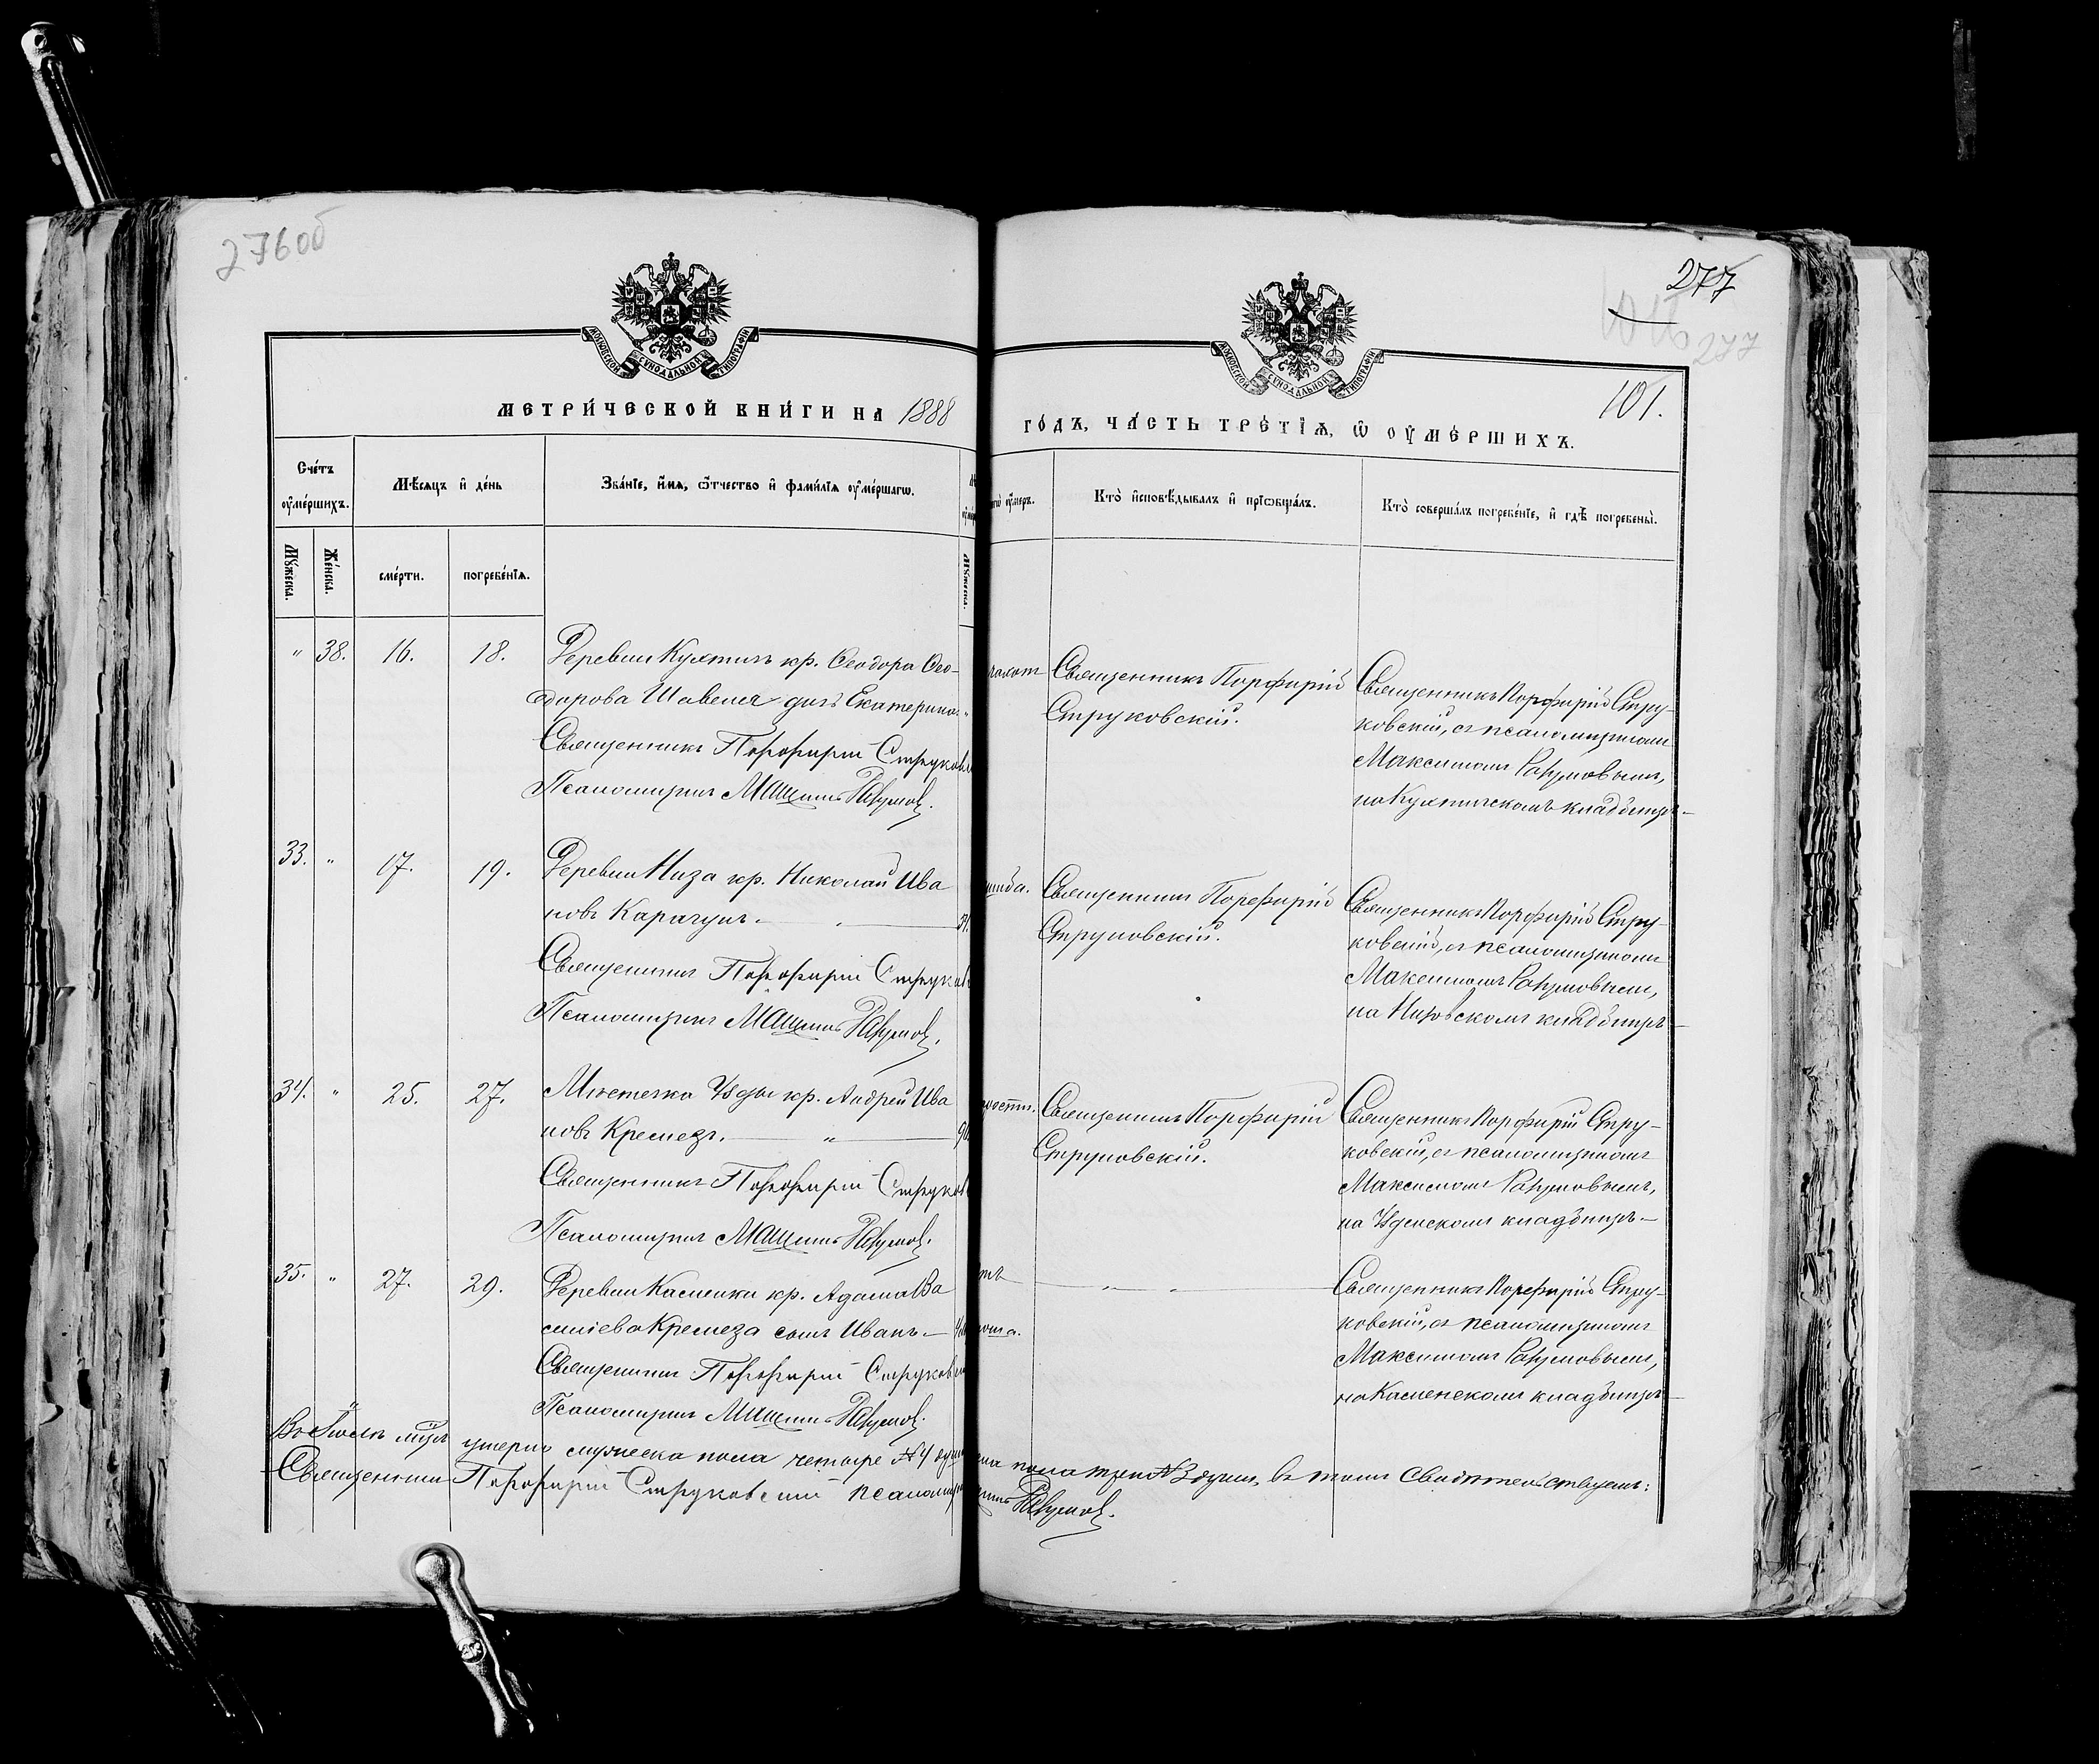 276об
277
277
101.
МОСКОВСКОЙ СѴНОДАЛЬНОЙ ТИПОГРАФІИ
МОСКОВСКОЙ СѴНОДАЛЬНОЙ ТИПОГРАФІИ
МЕТРИ́ЧЕСКОЙ КНИ́ГИ НА 1888
ГО́ДЪ, ЧА́СТЬ ТРЕ́ТІѦ, Ѽ ОУ҆МЕ́РШИХЪ.
Сче́тъ
оу҆ме́ршихъ.
Мꙋ́жеска.
Же́нска.
Мѣ́сѧцъ и҆ де́нь
сме́рти.
погребе́нїѧ.
Зва́нїе, и҆́мѧ, ѻ҆́тчество и҆ фами́лїѧ оу҆ме́ршагѡ.
Мꙋ́жеска.
оу҆́меръ.
Кто̀ и҆сповѣ́дывалъ и҆ прїѡбща́лъ.
Кто̀ соверша́лъ погребе́нїе, и҆ гдѣ̀ погребены̀.
" 38. 16. 18. Деревни Кухтичъ кр. Ѳеодора Ѳео-
дорова Шавеля дочь Екатерина. "
Священникъ Порфирій Струков
Псаломщикъ Максимъ Разумов.
Священникъ Порфирій
Струковскій.
Священникъ Порфирій Стру-
ковскій, съ псаломщикомъ
Максимомъ Разумовымъ,
на Кухтичскомъ кладбищѣ—
33. " 17. 19. Деревни Низа кр. Николай Ива
новъ Карачунъ.—
Священникъ Порфирій Струков
Псаломщикъ Максимъ Разумов.
Священникъ Порфирій
Струковскій.
Священникъ Порфирій Стру-
ковскій, съ псаломщикомъ
Максимомъ Разумовымъ,
на Низовскомъ кладбищѣ—
34. " 25. 27. Мѣстечка Узды кр. Андрей Ива
новъ Кремезъ. — "
Священникъ Порфирій Струков
Псаломщикъ Максимъ Разумов.
Священникъ Порфирій
Струковскій.
Священникъ Порфирій Стру-
ковскій, съ псаломщикомъ
Максимомъ Разумовымъ,
на Узденскомъ кладбищѣ—
35. " 27. 29. Деревни Каменки кр. Адама Ва
силіева Кремеза сынъ Иванъ—
Священникъ Порфирій Струков
Псаломщикъ Максимъ Разумов.
" "
Священникъ Порфирій Стру-
ковскій, съ псаломщикомъ
Максимомъ Разумовымъ,
на Каменскомъ кладбищѣ—
умерло мужеска пола четыре №4 пола три №3 души, въ томъ свидѣтельствуемъ:
Священникъ Порфирій Струковскій псаломщ Разумов.